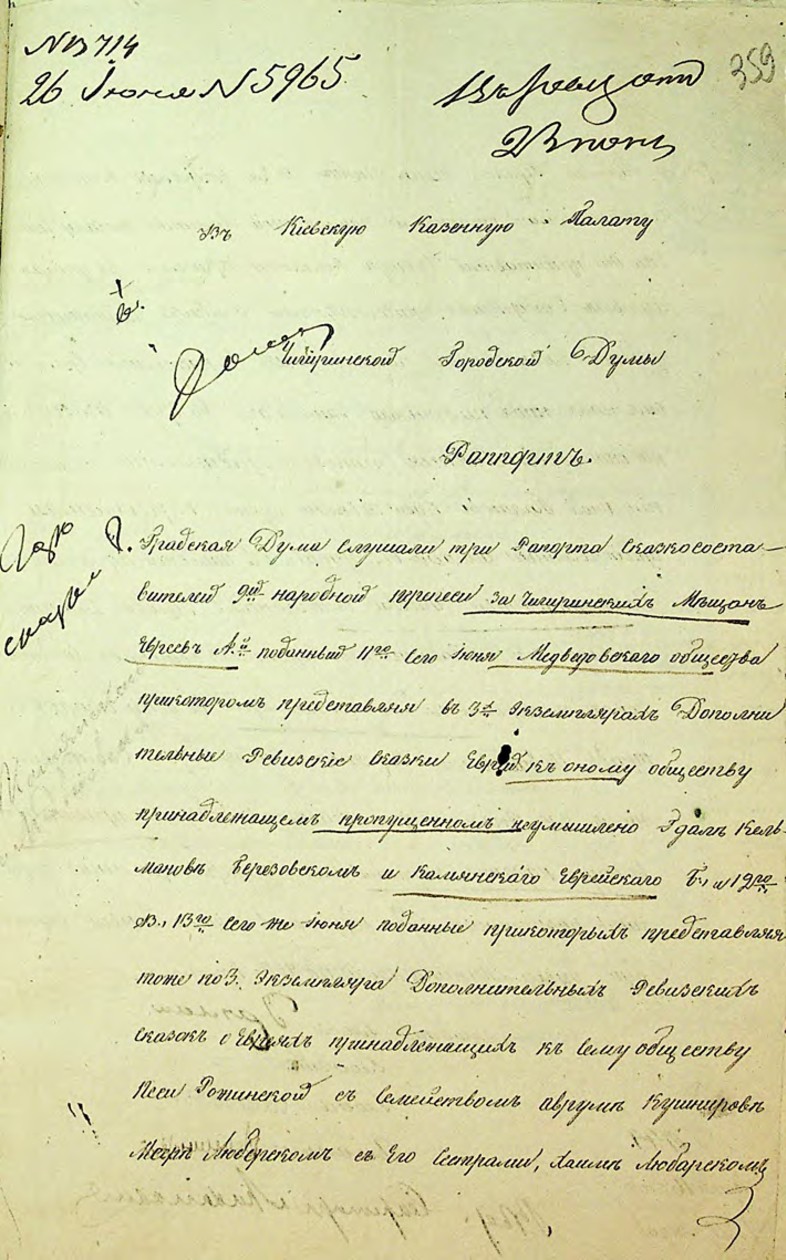 № 13714
26 Іюня № 5965
359
Въ Кіевскую Казенную Палату
Чигиринской Городской Думы
Рапортъ.
Градская Дума слушали три Рапорта Сказкососта-
вителей 9й народной переписи за Чигиринскихъ Мѣщанъ
Евреевъ А.й поданный 11го Сего Іюня Медведовскаго общества
прикоторомъ представляя въ 3х Экземплярахъ Дополни
тельные Ревизскіе Сказки къ оному обществу
принадлежащемъ пропущенномъ неумышлено Эдаль Кель-
мановѣ Березовскомъ и Камянскаго Еврейскаго Б., и 12го
В., 13го Сего же Іюня поданные прикоторыхъ представляя
тоже по 3. Экземпляра Дополнительныхъ Ревизскихъ
сказокъ о Евреяхъ принадлежащихъ къ сему обществу
Песи Рожинской съ Семействомъ Аврумѣ Кушнировѣ
Меерѣ Любарскомъ съ Его Сестрами, Хаимѣ Любарскомъ